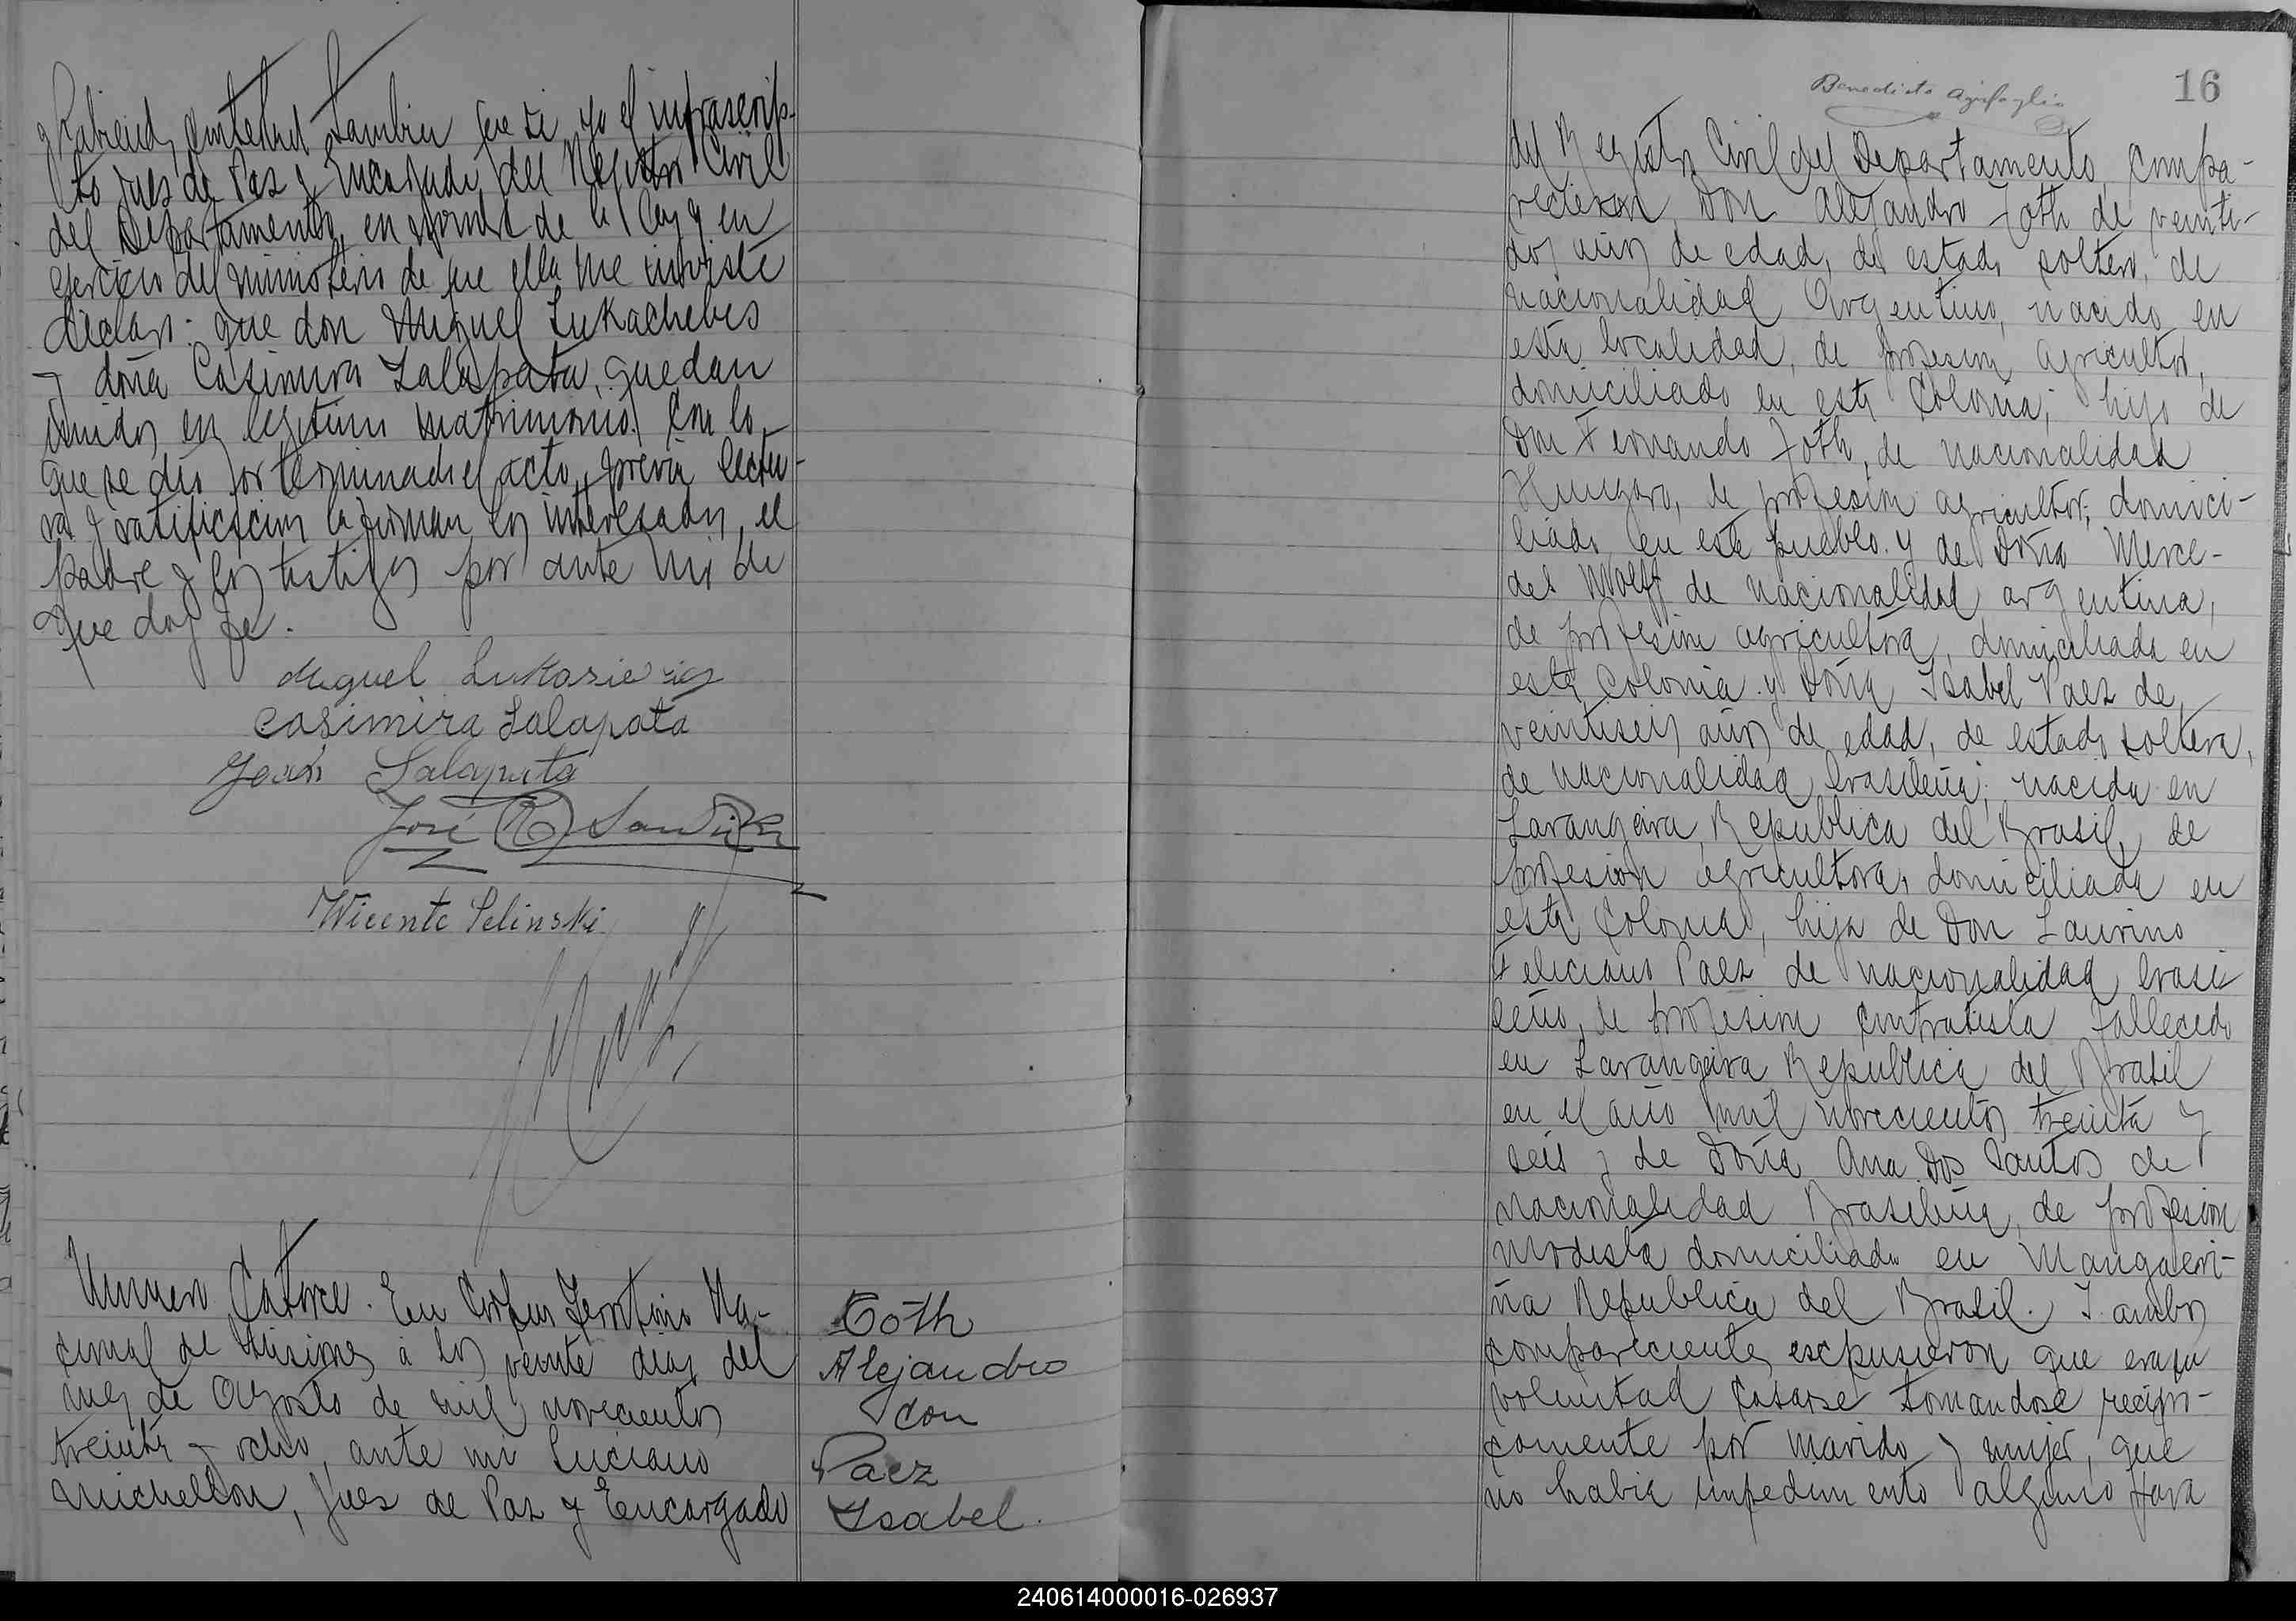 y habiendo contestado tambien que si yo el infrascrip-
to Juez de Paz y Encargado del Registro Civil
del Departamento, en nombre de la Ley y en
ejercicio del ministerio de que ella me inviste
declaro: que don Miguel Lukachebes
y doña Casimira Salapata, quedan
unidos en legitimo matrimonio. Con lo
que se dió por terminado el acto, previa lectu-
ra y ratificacion la firman los interesados, el
padre y los testigos por ante mi de
que doy fe.
Miguel Lukasiewicz
Casimira Salapata
Juan Salapata
José
Wicente Selinski
Numero Catorce. En Corpus Territorio Na-
cional de Misiones a los veinte dias del
mes de Agosto de mil novecientos
treinta y ocho, ante mi Luciano
Michellon, Juez de Paz y Encargado
Toth
Alejandro
con
Paez
Isabel.
16
Benedicto
del Registro Civil del Departamento, compa-
recieron, Don Alejandro Toth de veinti-
dos años de edad, de estado soltero, de
nacionalidad Argentino, nacido en
esta localidad, de profesion agricultor,
domiciliado en esta Colonia; hijo de
Don Fernando Toth, de nacionalidad
Hungaro, de profesion agricultor, domici-
liado en este pueblo. y de Doña Merce-
des Wolff de nacionalidad argentina,
de profesion agricultora, domiciliada en
esta Colonia. y Doña Isabel Paez de
veintiseis años de edad, de estado soltera,
de nacionalidad brasileña; nacida en
Larangeira, Republica del Brasil, de
profesion agricultora, domiciliada en
esta Colonia, hija de Don Laurino
Feliciano Paez de nacionalidad brasi
leño, de profesion contratista fallecido
en Larangeira Republica del Brasil
en el año mil novecientos treinta y
seis y de Doña Ana Dos Santos de
nacionalidad Brasileña, de profesion
modista domiciliada en Mangueri-
ña Republica del Brasil. Y ambos
comparecientes escpusieron que era su
voluntad casarse tomandose recipro-
comente por marido y mujer, que
no habia impedimento alguno para
240614000016-026937